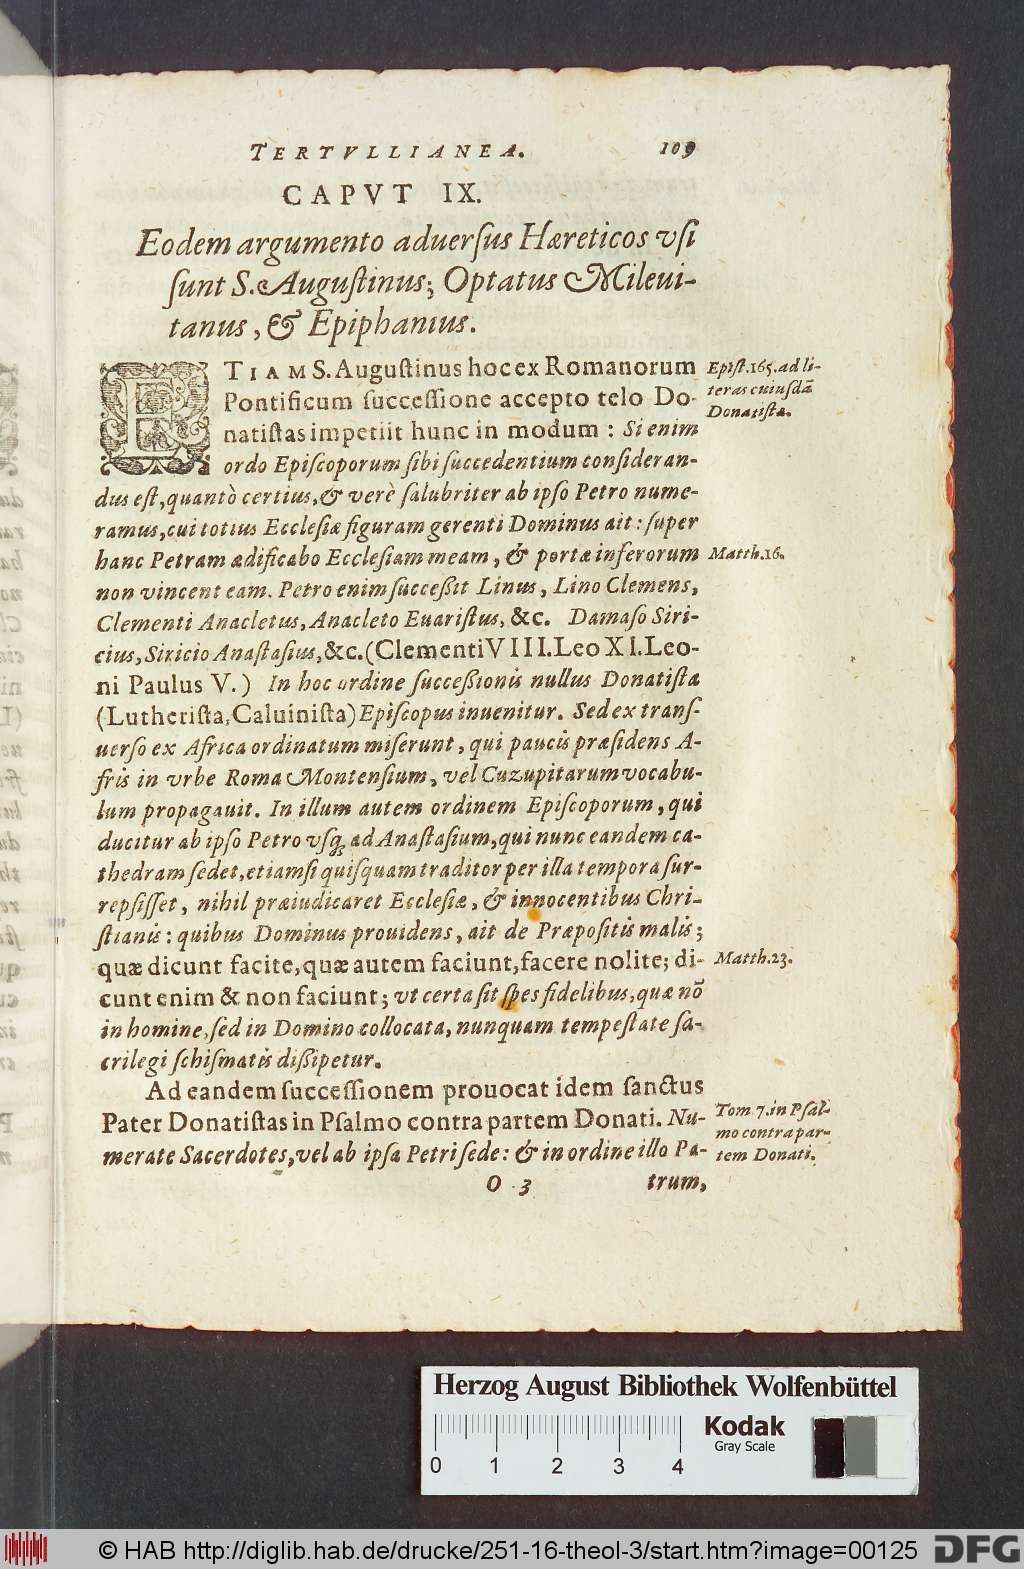 TERTVLLIANEA. 109
CAPVT IX.
Eodem argumento aduerſus Hæreticos vſi
ſunt S. Auguſtinus; Optatus Mileui-
tanus, & Epiphanius.
ETIAM S. Auguſtinus hoc ex Romanorum
Pontificum ſucceſſione accepto telo Do-
natiſtas impetiit hunc in modum: Si enim
ordo Epiſcoporum ſibi ſuccedentium conſideran-
dus eſt, quantò certius, & verè ſalubriter ab ipſo Petro nume-
ramus, cui totius Eccleſiæ figuram gerenti Dominus ait: ſuper
hanc Petram ædificabo Eccleſiam meam, & portæ inferorum
non vincent eam. Petro enim ſucceßit Linus, Lino Clemens,
Clementi Anacletus, Anacleto Euariſtus, &c. Damaſo Siri-
cius, Siricio Anaſtaſius, &c. (Clementi VIII. Leo XI. Leo-
ni Paulus V.) In hoc ordine ſucceßionis nullus Donatiſta
(Lutheriſta, Caluiniſta) Epiſcopus inuenitur. Sed ex tranſ-
uerſo ex Africa ordinatum miſerunt, qui paucis præſidens A-
fris in vrbe Roma Montenſium, vel Cuzupitarum vocabu-
lum propagauit. In illum autem ordinem Epiſcoporum, qui
ducitur ab ipſo Petro vſq; ad Anaſtaſium, qui nunc eandem ca-
thedram ſedet, etiamſi quiſquam traditor per illa tempora ſur-
repſiſſet, nihil præiudicaret Eccleſiæ, & innocentibus Chri-
ſtianis: quibus Dominus prouidens, ait de Præpoſitis malis;
quæ dicunt facite, quæ autem faciunt, facere nolite; di-
cunt enim & non faciunt; vt certa ſit ſpes fidelibus, quæ nō
in homine, ſed in Domino collocata, nunquam tempeſtate ſa-
crilegi ſchiſmatis dißipetur.
Ad eandem ſucceſſionem prouocat idem ſanctus
Pater Donatiſtas in Pſalmo contra partem Donati. Nu-
merate Sacerdotes, vel ab ipſa Petri ſede: & in ordine illo Pa-
O 3 trum,
Epiſt. 165. ad li-
teras cuiuſdā
Donatiſtæ.
Matth. 16.
Matth. 23.
Tom 7. in Pſal-
mo contra par-
tem Donati.
Herzog August Bibliothek Wolfenbüttel
Kodak
Gray Scale
0 1 2 3 4
© HAB http://diglib.hab.de/drucke/251-16-theol-3/start.htm?image=00125
DFG